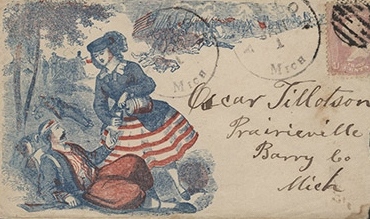 Mich
Mich
Oscar Tillotson
Prairieville
Barry Co
Mich